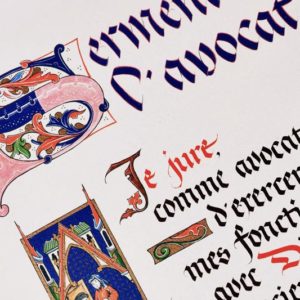 Serment
l'avocat
Je jure,
comme avocat
d'exercer
mes fonctions
avec